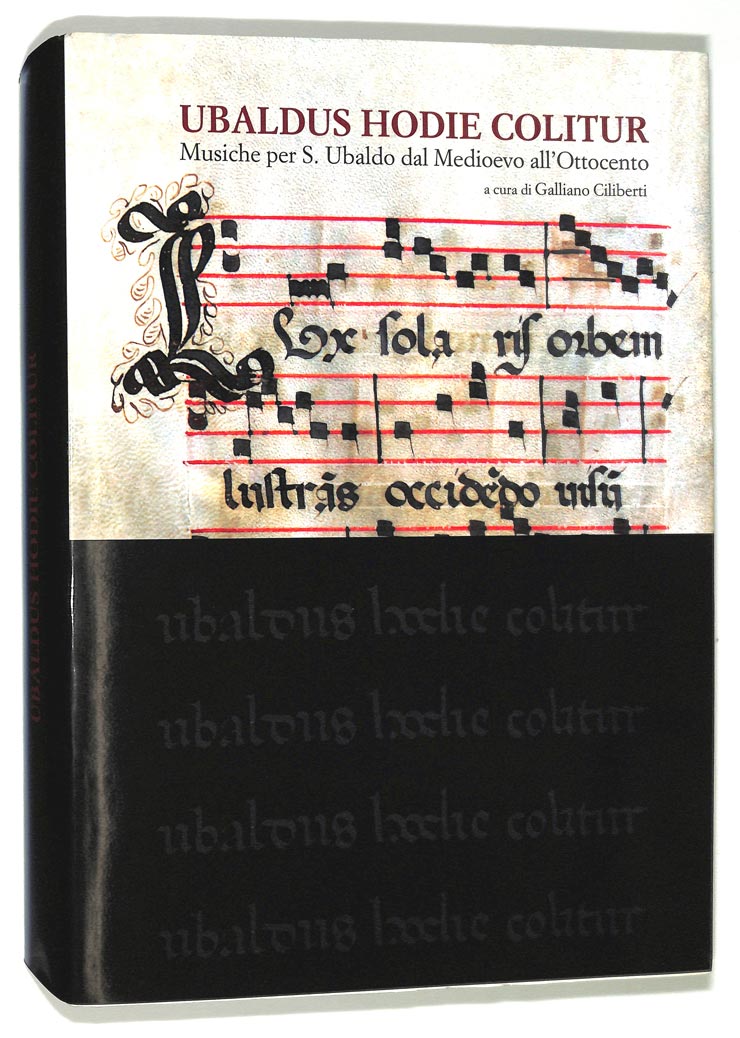 UBALDUS HODIE COLITUR
Musiche per S. Ubaldo dal Medioevo all'Ottocento
a cura di Galliano Ciliberti
Lux sola ris orbem
lustrãs occidẽdo visũ
ubaldus hodie colitur
ubaldus hodie colitur
ubaldus hodie colitur
ubaldus hodie colitur
UBALDUS HODIE COLITUR